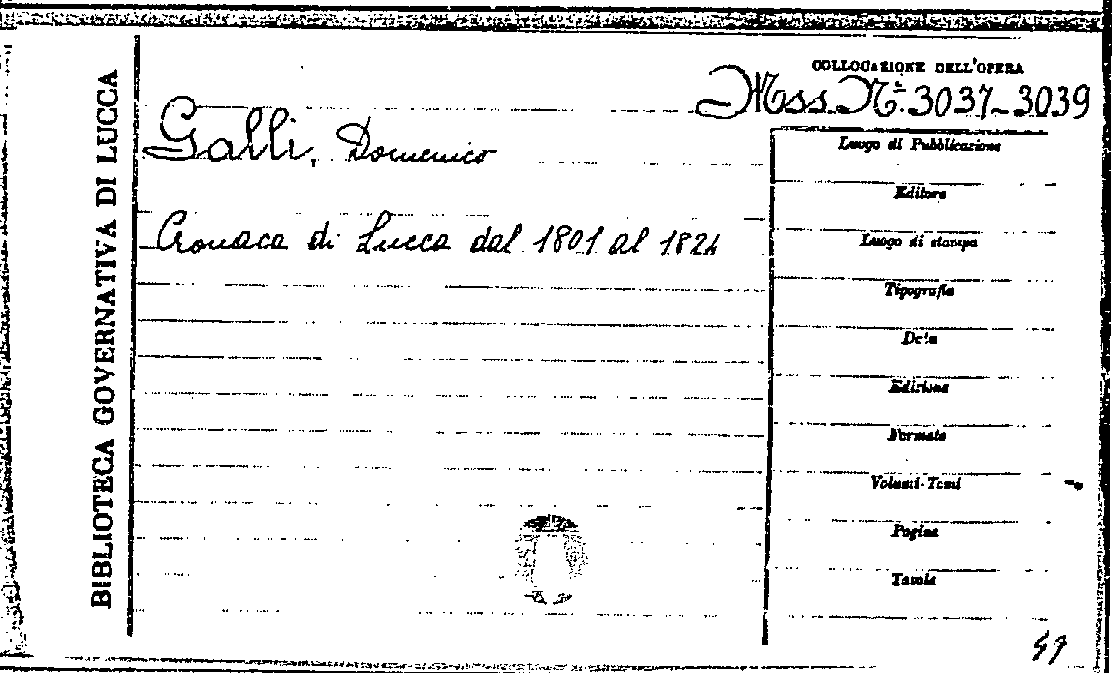 BIBLIOTECA GOVERNATIVA DI LUCCA
COLLOCAZIONE DELL'OPERA
Mss. Nº. 3037-3039
Galli, Domenico
Cronaca di Lucca dal 1801 al 1824
Luogo di Pubblicazione
Editore
Luogo di stampa
Tipografia
Data
Edizione
Formato
Volumi-Tomi
Pagine
Tavole